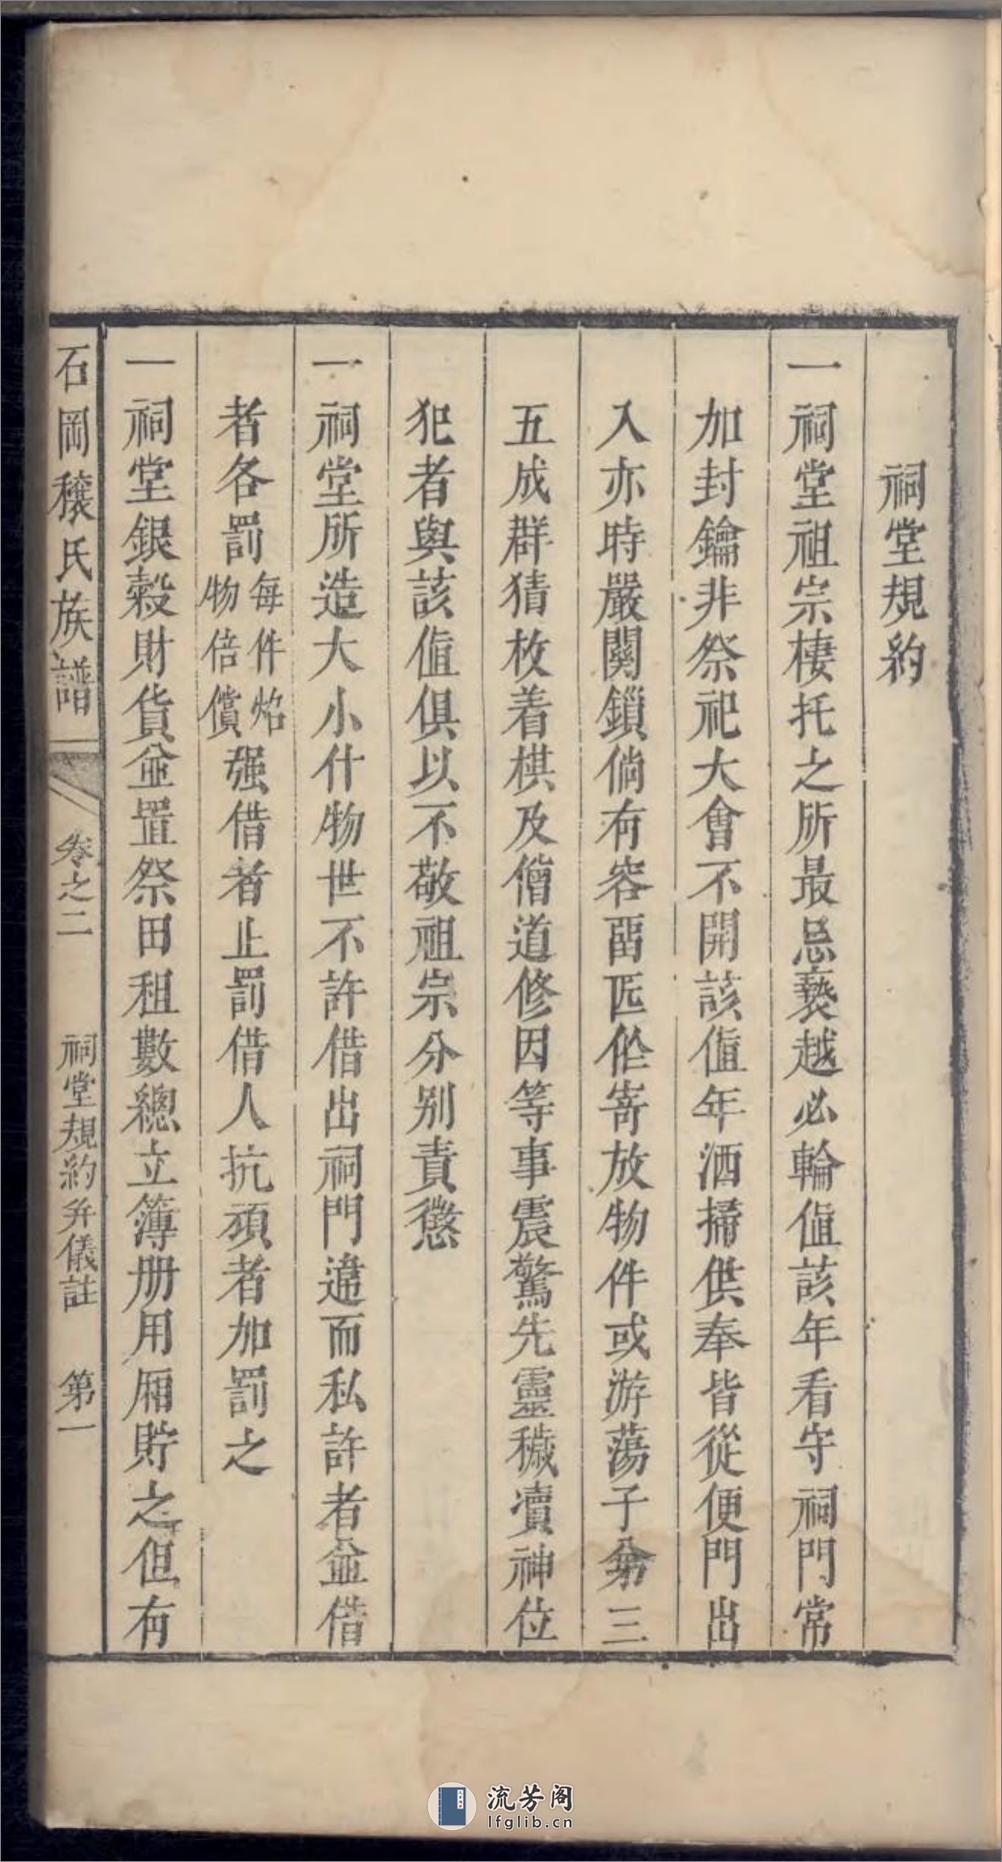 祠堂規約
一祠堂祖宗棲托之所最忌褻越必輪值該年看守祠門常
加封鑰非祭祀大會不開該值年洒掃供奉皆從便門出
入亦時嚴關鎖倘有容畱匠伦寄放物件或游蕩子弟三
五成群猜枚着棋及僧道修因等事震驚先靈穢瀆神位
犯者與該值俱以不敬祖宗分別責懲
一祠堂所造大小什物世不許借出祠門違而私許者並借
者各罰每件焰物倍償强借者止罰借人抗頑者加罰之
一祠堂銀穀財貨並置祭田租數總立簿册用厢貯之但有
石岡穣氏族譜 卷之二 祠堂規約并儀註 第一
流芳阁
lfglib.cn